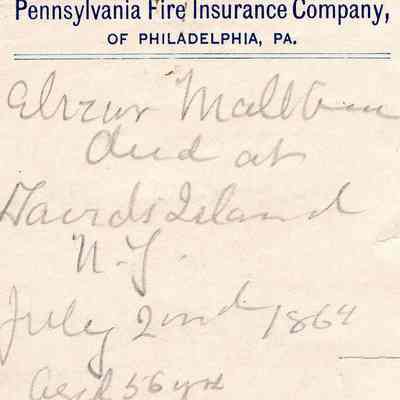 Pennsylvania Fire Insurance Company,
OF PHILADELPHIA, PA.
Elizur Maltbie
died at
Davids Island
N.Y.
July 2nd 1864
Aged 56 yrs